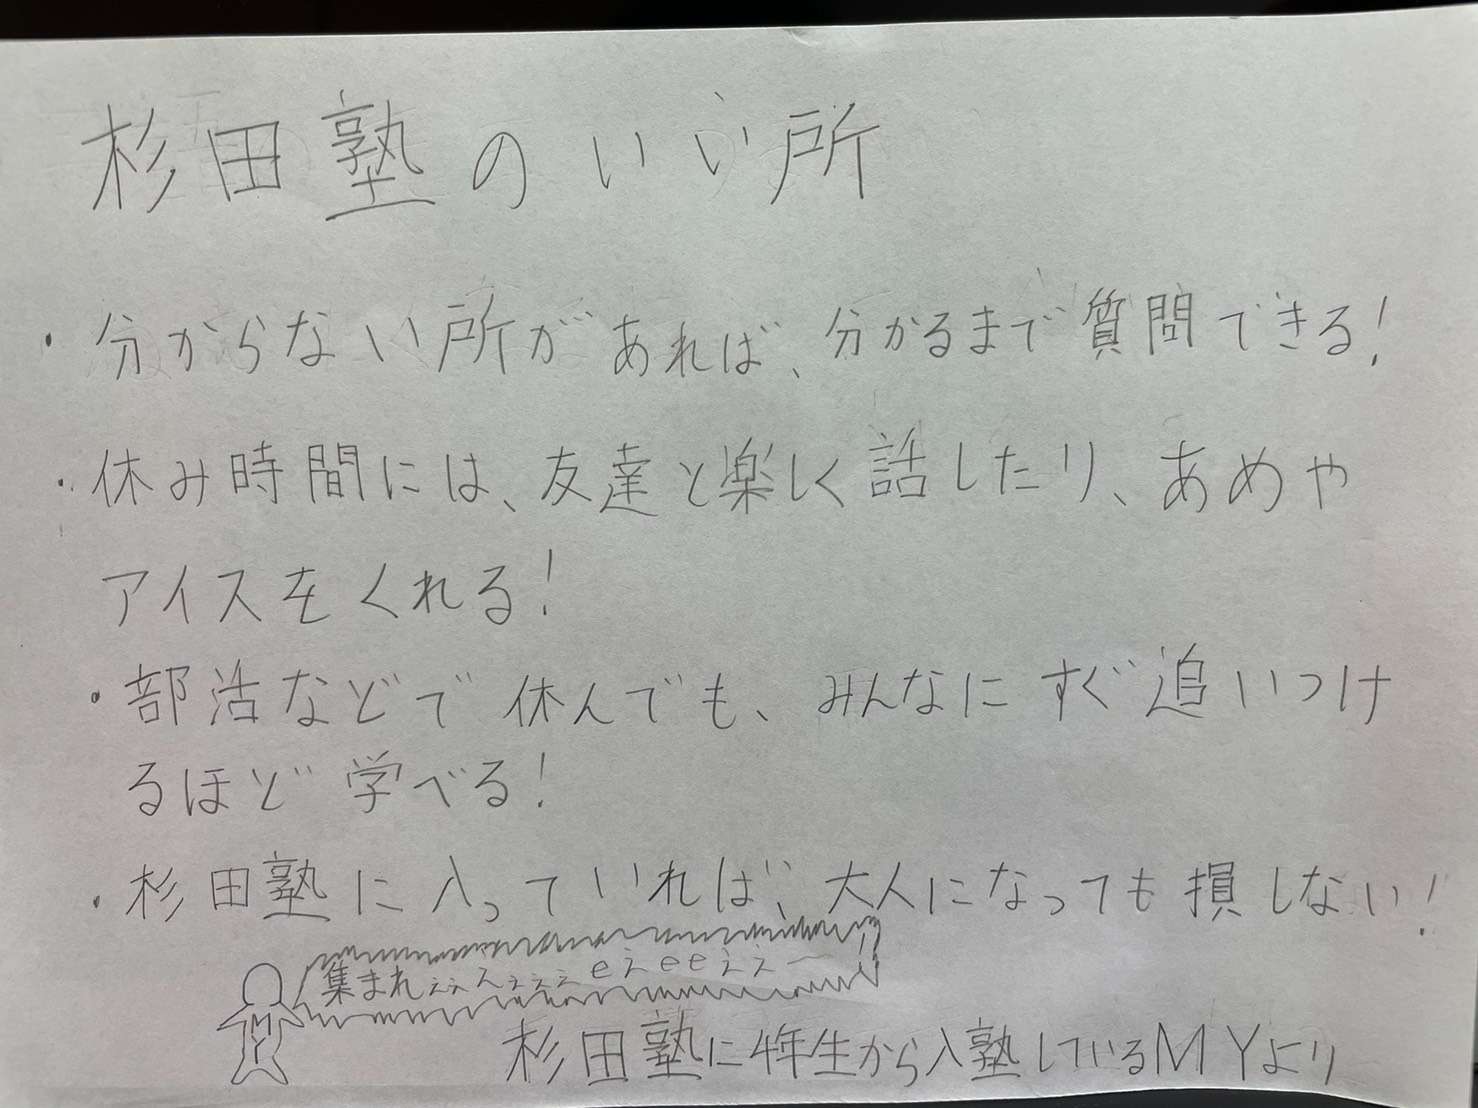 杉田塾のいい所
・分からない所があれば、分かるまで質問できる!
・休み時間には、友達と楽しく話したり、あめや
アイスをくれる!
・部活などで休んでも、みんなにすぐ追いつけ
るほど学べる!
・杉田塾に入っていれば、大人になっても損しない!
集まれぇぇえぇぇぇeえeeええー!!
MY
杉田塾に4年生から入塾しているMYより